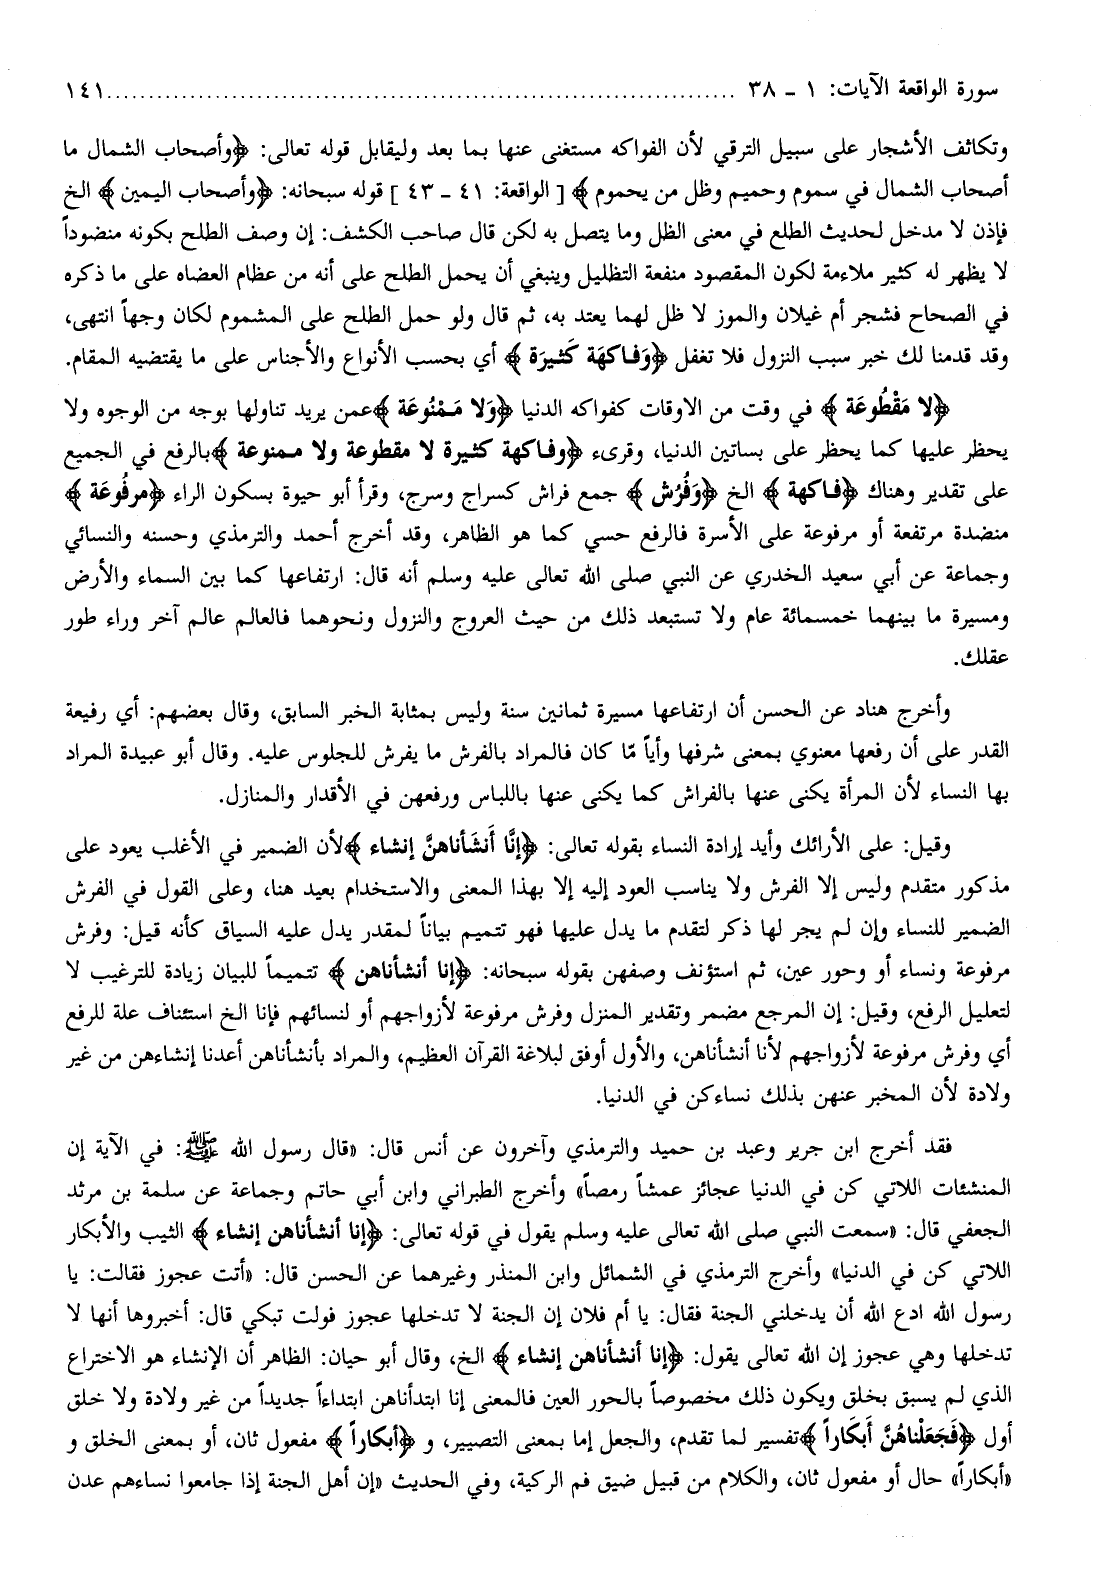 سورة الواقعة الآيات: ١ ـ ٣٨ ........................................................................ ١٤١
وتكاثف الأشجار على سبيل الترقي لأن الفواكه مستغنى عنها بما بعد وليقابل قوله تعالى: ﴿وأصحاب الشمال ما
أصحاب الشمال في سموم وحميم وظل من يحموم﴾ [ الواقعة: ٤١ ـ ٤٣ ] قوله سبحانه: ﴿وأصحاب اليمين﴾ الخ
فإذن لا مدخل لحديث الطلع في معنى الظل وما يتصل به لكن قال صاحب الكشف: إن وصف الطلح بكونه منضوداً
لا يظهر له كثير ملاءمة لكون المقصود منفعة التظليل وينبغي أن يحمل الطلح على أنه من عظام العضاه على ما ذكره
في الصحاح فشجر أم غيلان والموز لا ظل لهما يعتد به، ثم قال ولو حمل الطلح على المشموم لكان وجهاً انتهى،
وقد قدمنا لك خبر سبب النزول فلا تغفل ﴿وَفاكهَة كَثيرَة﴾ أي بحسب الأنواع والأجناس على ما يقتضيه المقام.
﴿لا مَقْطُوعَة﴾ في وقت من الاوقات كفواكه الدنيا ﴿وَلا مَمْنُوعَة﴾عمن يريد تناولها بوجه من الوجوه ولا
يحظر عليها كما يحظر على بساتين الدنيا، وقرىء ﴿وفاكهة كثيرة لا مقطوعة ولا ممنوعة﴾بالرفع في الجميع
على تقدير وهناك ﴿فاكهة﴾ الخ ﴿وَفُرُش﴾ جمع فراش كسراج وسرج، وقرأ أبو حيوة بسكون الراء ﴿مرفُوعَة﴾
منضدة مرتفعة أو مرفوعة على الأسرة فالرفع حسي كما هو الظاهر، وقد أخرج أحمد والترمذي وحسنه والنسائي
وجماعة عن أبي سعيد الخدري عن النبي صلى الله تعالى عليه وسلم أنه قال: ارتفاعها كما بين السماء والأرض
ومسيرة ما بينهما خمسمائة عام ولا تستبعد ذلك من حيث العروج والنزول ونحوهما فالعالم عالم آخر وراء طور
عقلك.
وأخرج هناد عن الحسن أن ارتفاعها مسيرة ثمانين سنة وليس بمثابة الخبر السابق، وقال بعضهم: أي رفيعة
القدر على أن رفعها معنوي بمعنى شرفها وأياً مّا كان فالمراد بالفرش ما يفرش للجلوس عليه. وقال أبو عبيدة المراد
بها النساء لأن المرأة يكنى عنها بالفراش كما يكنى عنها باللباس ورفعهن في الأقدار والمنازل.
وقيل: على الأرائك وأيد إرادة النساء بقوله تعالى: ﴿إنَّا أَنشَأناهنَّ إنشاء﴾لأن الضمير في الأغلب يعود على
مذكور متقدم وليس إلا الفرش ولا يناسب العود إليه إلا بهذا المعنى والاستخدام بعيد هنا، وعلى القول في الفرش
الضمير للنساء وإن لم يجر لها ذكر لتقدم ما يدل عليها فهو تتميم بياناً لمقدر يدل عليه السياق كأنه قيل: وفرش
مرفوعة ونساء أو وحور عين، ثم استؤنف وصفهن بقوله سبحانه: ﴿إنا أنشأناهن﴾ تتميماً للبيان زيادة للترغيب لا
لتعليل الرفع، وقيل: إن المرجع مضمر وتقدير المنزل وفرش مرفوعة لأزواجهم أو لنسائهم فإنا الخ استئناف علة للرفع
أي وفرش مرفوعة لأزواجهم لأنا أنشأناهن، والأول أوفق لبلاغة القرآن العظيم، والمراد بأنشأناهن أعدنا إنشاءهن من غير
ولادة لأن المخبر عنهن بذلك نساءكن في الدنيا.
فقد أخرج ابن جرير وعبد بن حميد والترمذي وآخرون عن أنس قال: «قال رسول الله ﷺ: في الآية إن
المنشئات اللاتي كن في الدنيا عجائز عمشاً رمصاً» وأخرج الطبراني وابن أبي حاتم وجماعة عن سلمة بن مرثد
الجعفي قال: «سمعت النبي صلى الله تعالى عليه وسلم يقول في قوله تعالى: ﴿إنا أنشأناهن إنشاء﴾ الثيب والأبكار
اللاتي كن في الدنيا» وأخرج الترمذي في الشمائل وابن المنذر وغيرهما عن الحسن قال: «أتت عجوز فقالت: يا
رسول الله ادع الله أن يدخلني الجنة فقال: يا أم فلان إن الجنة لا تدخلها عجوز فولت تبكي قال: أخبروها أنها لا
تدخلها وهي عجوز إن الله تعالى يقول: ﴿إنا أنشأناهن إنشاء﴾ الخ، وقال أبو حيان: الظاهر أن الإنشاء هو الاختراع
الذي لم يسبق بخلق ويكون ذلك مخصوصاً بالحور العين فالمعنى إنا ابتدأناهن ابتداءاً جديداً من غير ولادة ولا خلق
أول ﴿فَجَعَلْناهُنَّ أَبكَاراً﴾تفسير لما تقدم، والجعل إما بمعنى التصيير، و ﴿أبكاراً﴾ مفعول ثان، أو بمعنى الخلق و
«أبكاراً» حال أو مفعول ثان، والكلام من قبيل ضيق فم الركية، وفي الحديث «إن أهل الجنة إذا جامعوا نساءهم عدن